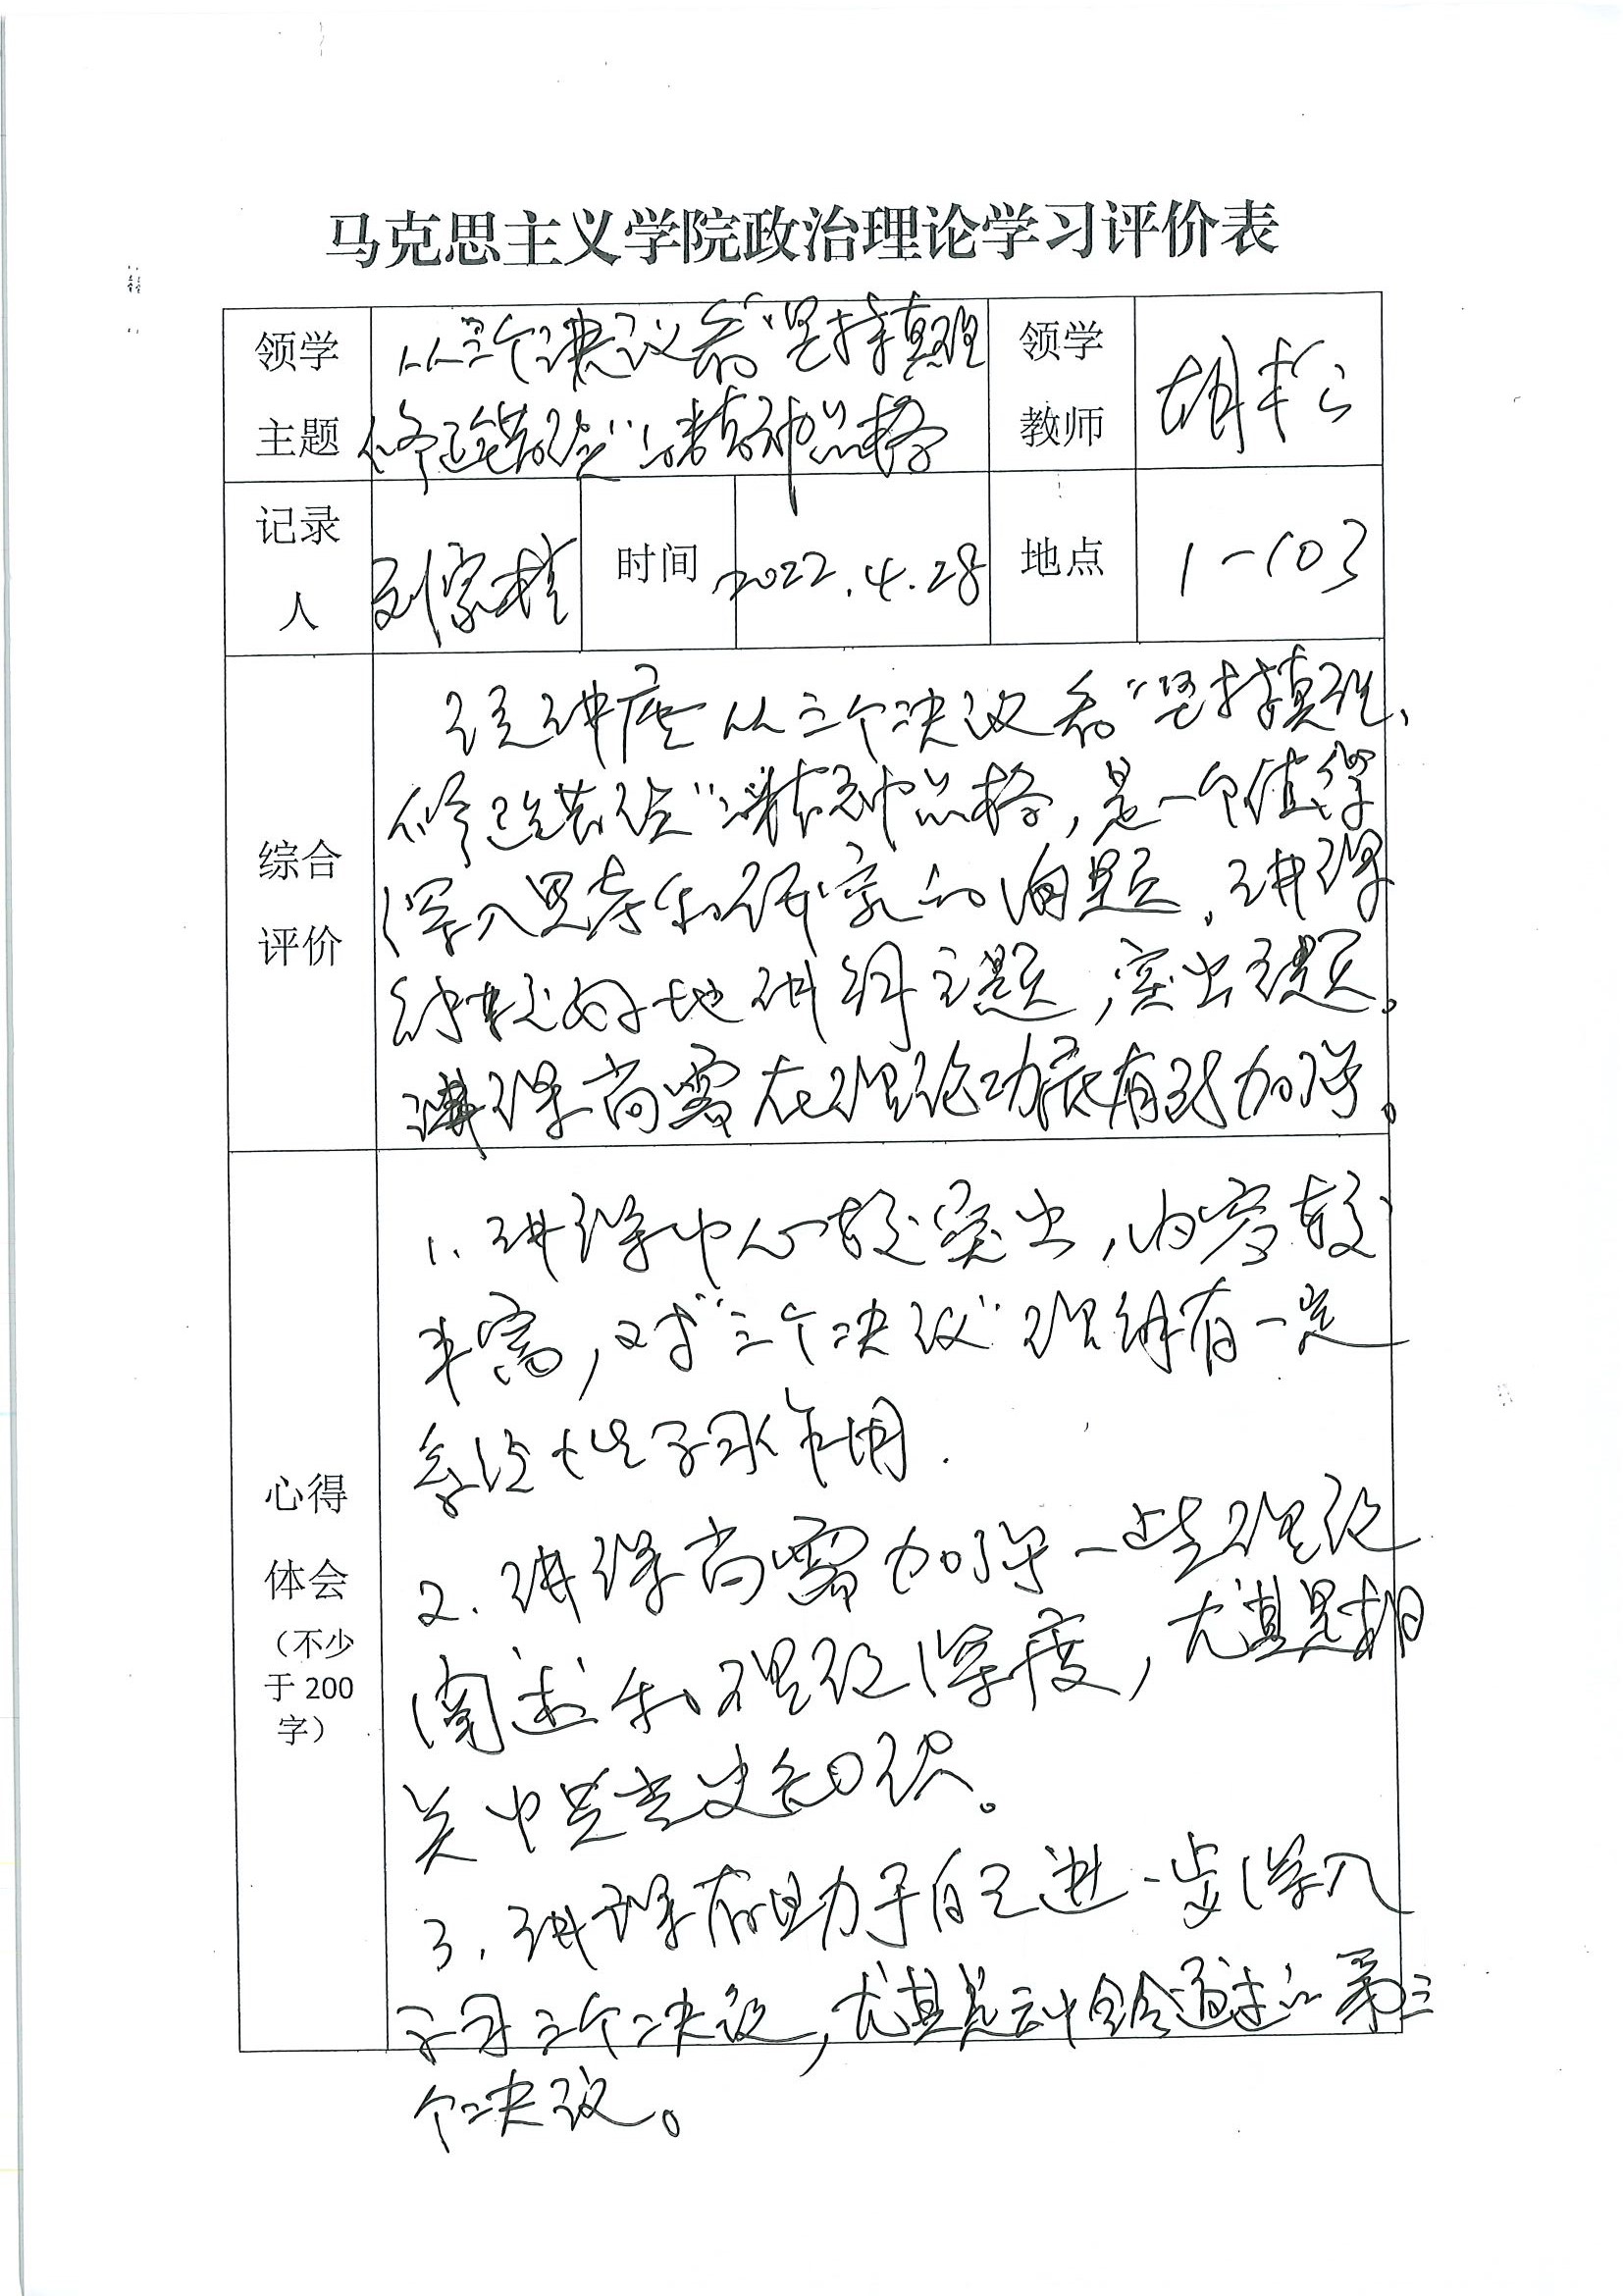 马克思主义学院政治理论学习评价表
领学
主题
从三个决议看“坚持真理
修正错误”的精神品格
领学
教师
胡
记录
人
刘家桂
时间
2022.4.28
地点
1-103
综合
评价
该讲座从三个决议看“坚持真理、
修正错误”的精神品格,是一个值得
深入思考和研究的问题,讲课
能较好地讲解主题,突出主题。
讲课尚需在理论功底有所加强。
心得
体会
(不少
于200
字)
1、讲课中心较突出,内容较
丰富,对“三个决议”理解有一定
系统性学习作用.
2.讲课尚需加强一些理论
阐述和理论深度,尤其是相
关中共党史知识。
3.讲课有助于自己进一步深入
学习三个决议,尤其是六中全会通过的第三
个决议。